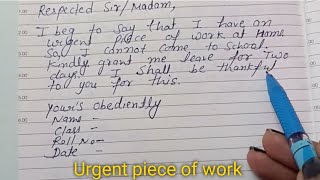 Respected Sir/Madam,
I beg to say that I have an
urgent piece of work at Home
So I cannot come to School.
Kindly grant me leave for Two
days. I shall be thankful
to you for this.
Your's obediently
Name -
Class -
Roll No -
Date -
Urgent piece of work